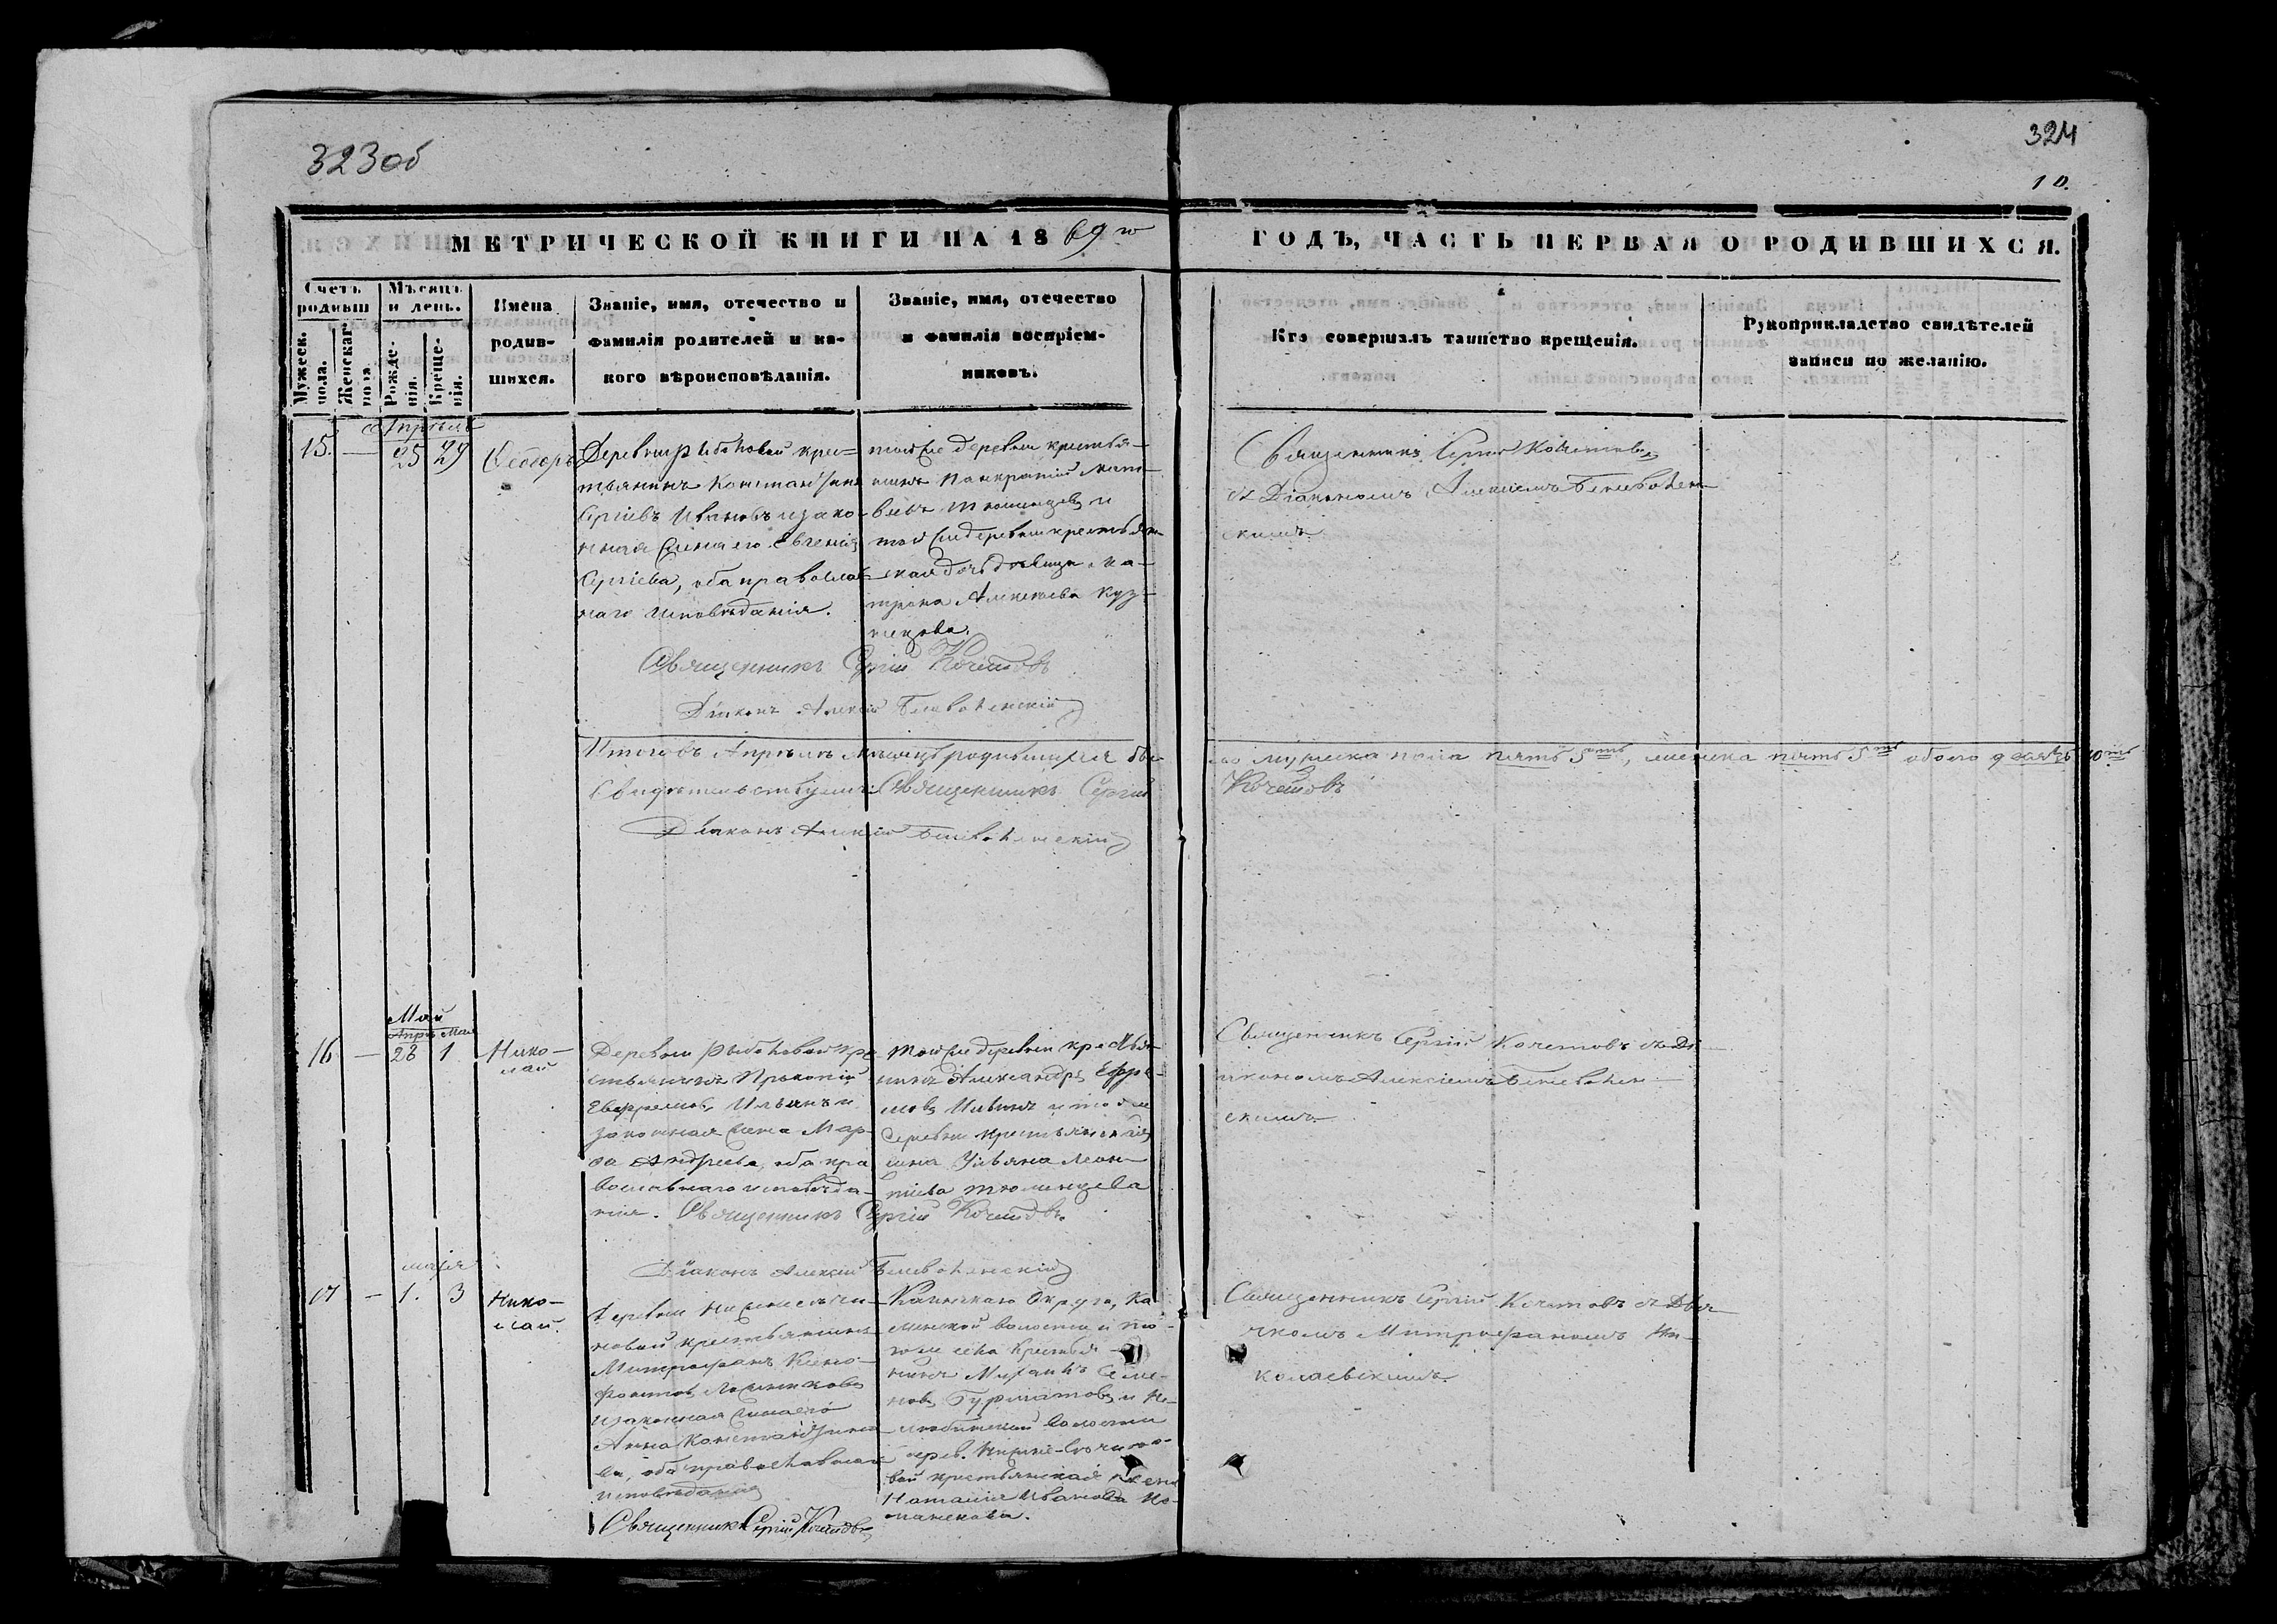 323об
324
10.
МЕТРИЧЕСКОЙ КНИГИ НА 1869го
ГОДЪ, ЧАСТЬ ПЕРВАЯ О РОДИВШИХСЯ.
Счетъ родивш
Мужеск. пола.
Женскаг пола.
Мѣсяцъ и день.
Рожде-нія.
Креще-нія.
Имена
родив-
шихся.
Званіе, имя, отечество и
фамилія родителей и ка-
кого вѣроисповѣданія.
Званіе, имя, отечество
и фамилія воспріем-
никовъ.
Кто совершалъ таинство крещенія.
Рукоприкладство свидѣтелей
записи по желанію.
Апрѣль
15. — 25 29 Ѳеодоръ
Деревни Рыбаковой крес-
тьянинъ Константинъ
Сергіевъ Ивановъ и зако-
нная жена его Евгенія
Сергіева, оба православ-
наго исповѣданія.
той же деревни крестья-
нинъ Панкратій Мат-
вѣевъ Тюменцевъ и
той же деревни крестьян-
ская дочь дѣвица Ма-
трона Алексѣева Куз-
нецова.
Священникъ Сергій Кочетовъ
съ Діакономъ Алексіемъ Беневолен-
скимъ
Священникъ Сергій Кочетовъ
Діаконъ Алексій Беневоленскій
Итого въ Апрѣлѣ мѣсяцѣ родившихся бы-
ло мужеска пола пять 5ть, женска пять 5ть обоего десять 10ть
Свидѣтельствуемъ: Священникъ Сергій
Кочетовъ
Діаконъ Алексій Беневоленскій
Май
Апрѣ Мая
16 — 28 1 Нико-
лай
Деревни Рыбаковой кре-
стьянинъ Прокопій
Евфремовъ Ильинъ и
законная жена Мар-
ѳа Андреева, оба пра-
вославнаго исповѣда-
нія.
Той же деревни крестья-
нинъ Александръ Ефре-
мовъ Ильинъ и той же
деревни крестьянская
жена Ульяна Леон-
тіева Тюменцева
Священникъ Сергій Кочетовъ съ Ді-
акономъ Алексіемъ Беневолен-
скимъ
Священникъ Сергій Кочетовъ.
Діаконъ Алексій Беневоленскій
маія
17 — 1. 3 Нико-
лай.
Деревни
новой крестьянинъ
Митрофанъ Ксено-
фонтовъ
и законная жена его
Анна Константино-
ва, оба православнаго
исповѣданія
Каинскаго Округа, Ка-
минской волости и то-
го же села крестья-
нинъ Михаилъ Семе-
новъ и Не-
любинской волости
дерев.
вой крестьянская жена
Наталія Иванова
Священникъ Сергій Кочетовъ съ Дья-
чкомъ Митрофаномъ Ни-
колаевскимъ.
Священникъ Сергій Кочетовъ